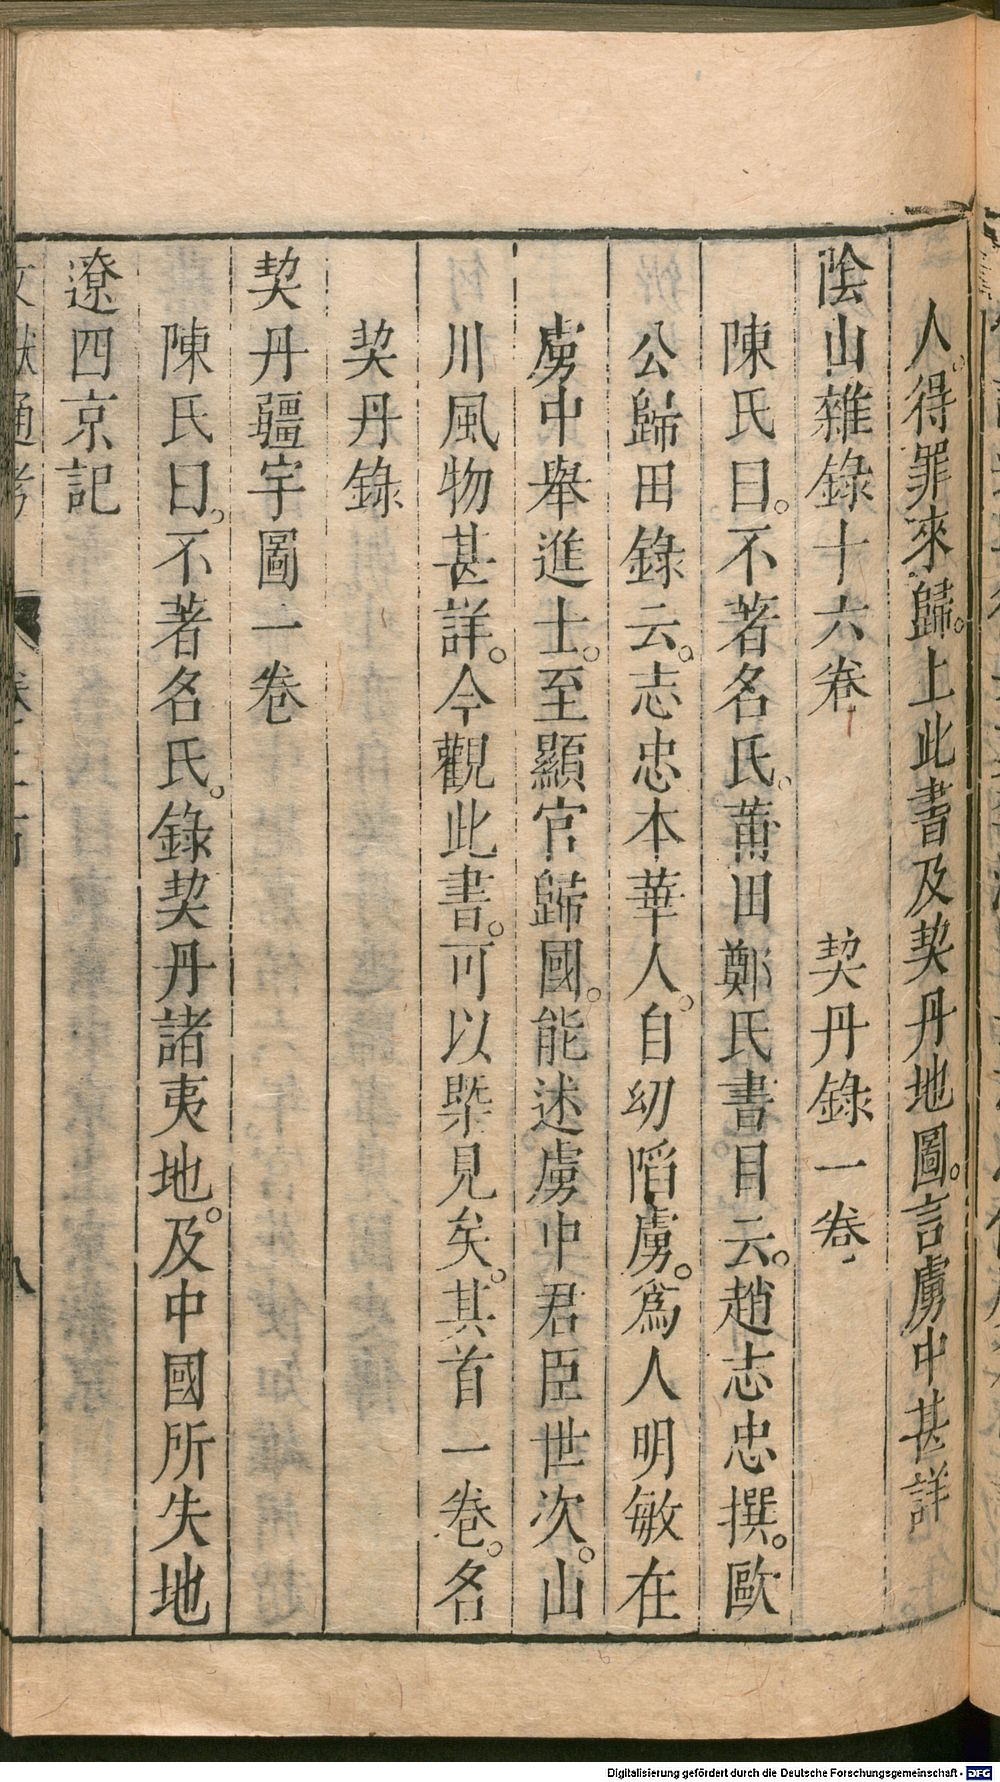 人。得罪來歸。上此書及契丹地圖。言虜中甚詳
陰山雜錄十六卷 契丹錄一卷
陳氏曰。不著名氏。莆田鄭氏書目云。趙志忠撰。歐
公歸田錄云。志忠本華人。自幼陷虜。爲人明敏在
虜中舉進士。至顯官歸國。能述虜中君臣世次。山
川風物甚詳。今觀此書。可以槩見矣。其首一卷。名
契丹錄
契丹疆宇圖一卷
陳氏曰。不著名氏。錄契丹諸夷地。及中國所失地
遼四京記
文獻通考 卷二百 八
Digitalisierung gefördert durch die Deutsche Forschungsgemeinschaft - DFG